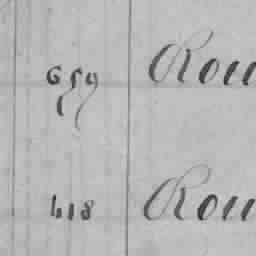 659 Rou
418 Rou